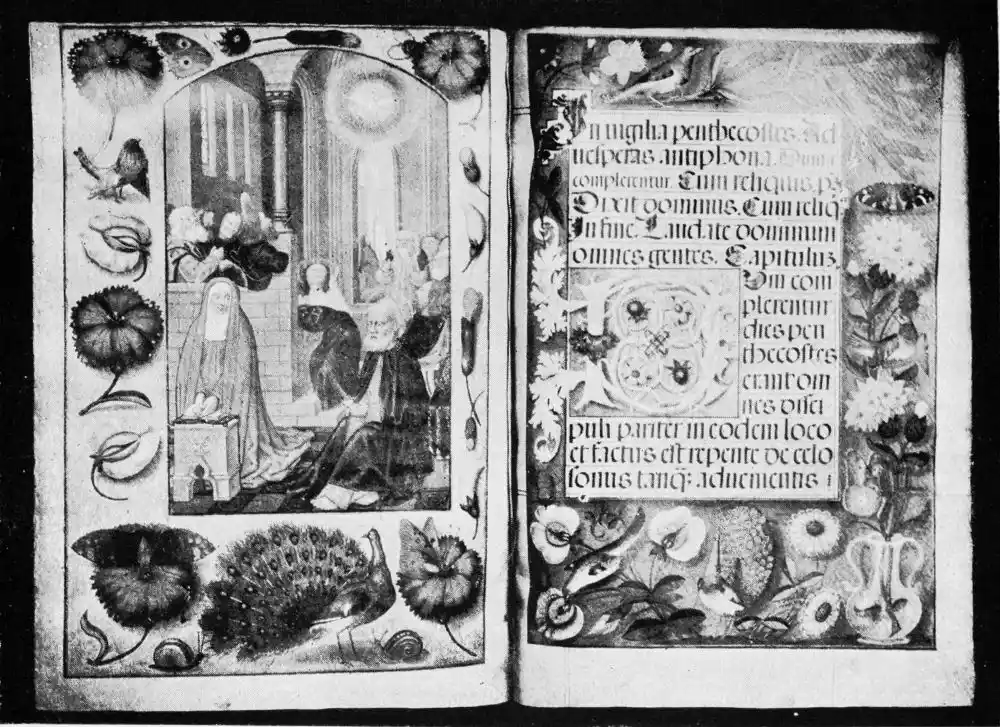 In uigilia penthecostes. Ad
uesperas antiphona. Dum
complerentur. Cum reliquis. ps
Dixit dominus. Cum reliq
in fine. Laudate dominum
omnes gentes. Capitulus.
Dum com
plerentur
dies pen
thecostes
erant om
nes disci
puli pariter in eodem loco
et factus est repente de celo
sonus tanq: aduenientis